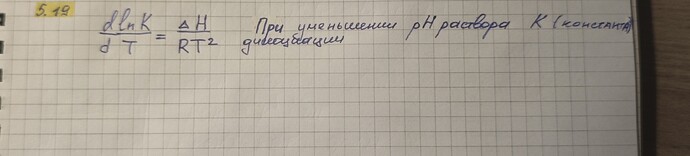 5.19
dlnK/dT = ΔH/RT² При уменьшении pH раствора K (константа
диссоциации